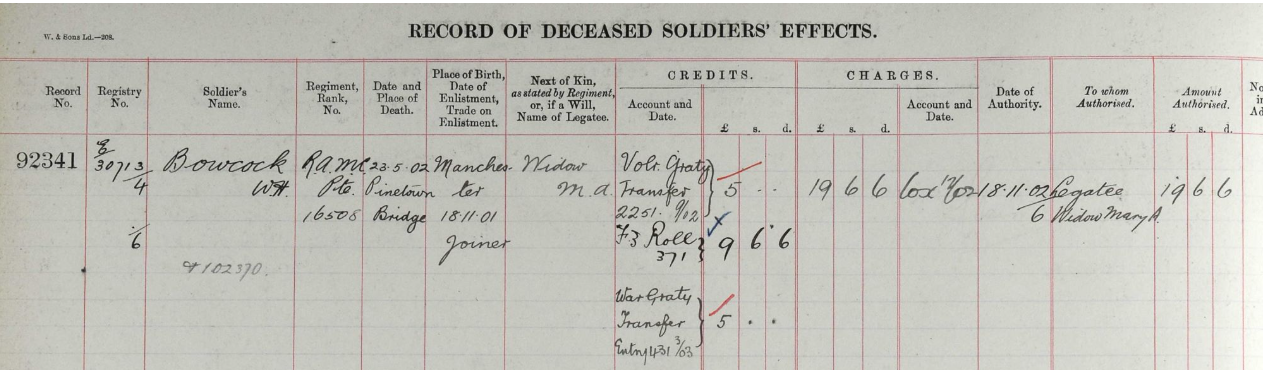 W. & Sons Ld.—208.
RECORD OF DECEASED SOLDIERS' EFFECTS.
Record No.
Registry No.
Soldier's Name.
Regiment, Rank, No.
Date and Place of Death.
Place of Birth, Date of Enlistment, Trade on Enlistment.
Next of Kin, as stated by Regiment, or, if a Will, Name of Legatee.
CREDITS.
Account and Date.
£ s. d.
CHARGES.
£ s. d.
Account and Date.
Date of Authority.
To whom Authorised.
Amount Authorised.
£ s. d.
92341
E
30713/4
/6
Bowcock
WH.
#102370.
R.A.M.C
Pte.
16508
23.5.02
Pinetown
Bridge
Manches-
ter
18.11.01
Joiner
Widow
M.A.
Volr. Graty
Transfer
2251. 9/02
5 . .
F3 Roll
371
9 6 6
War Graty
Transfer
Entry 431 3/03
5 . .
19 6 6
18.11.02
6
Legatee
Widow Mary A.
19 6 6